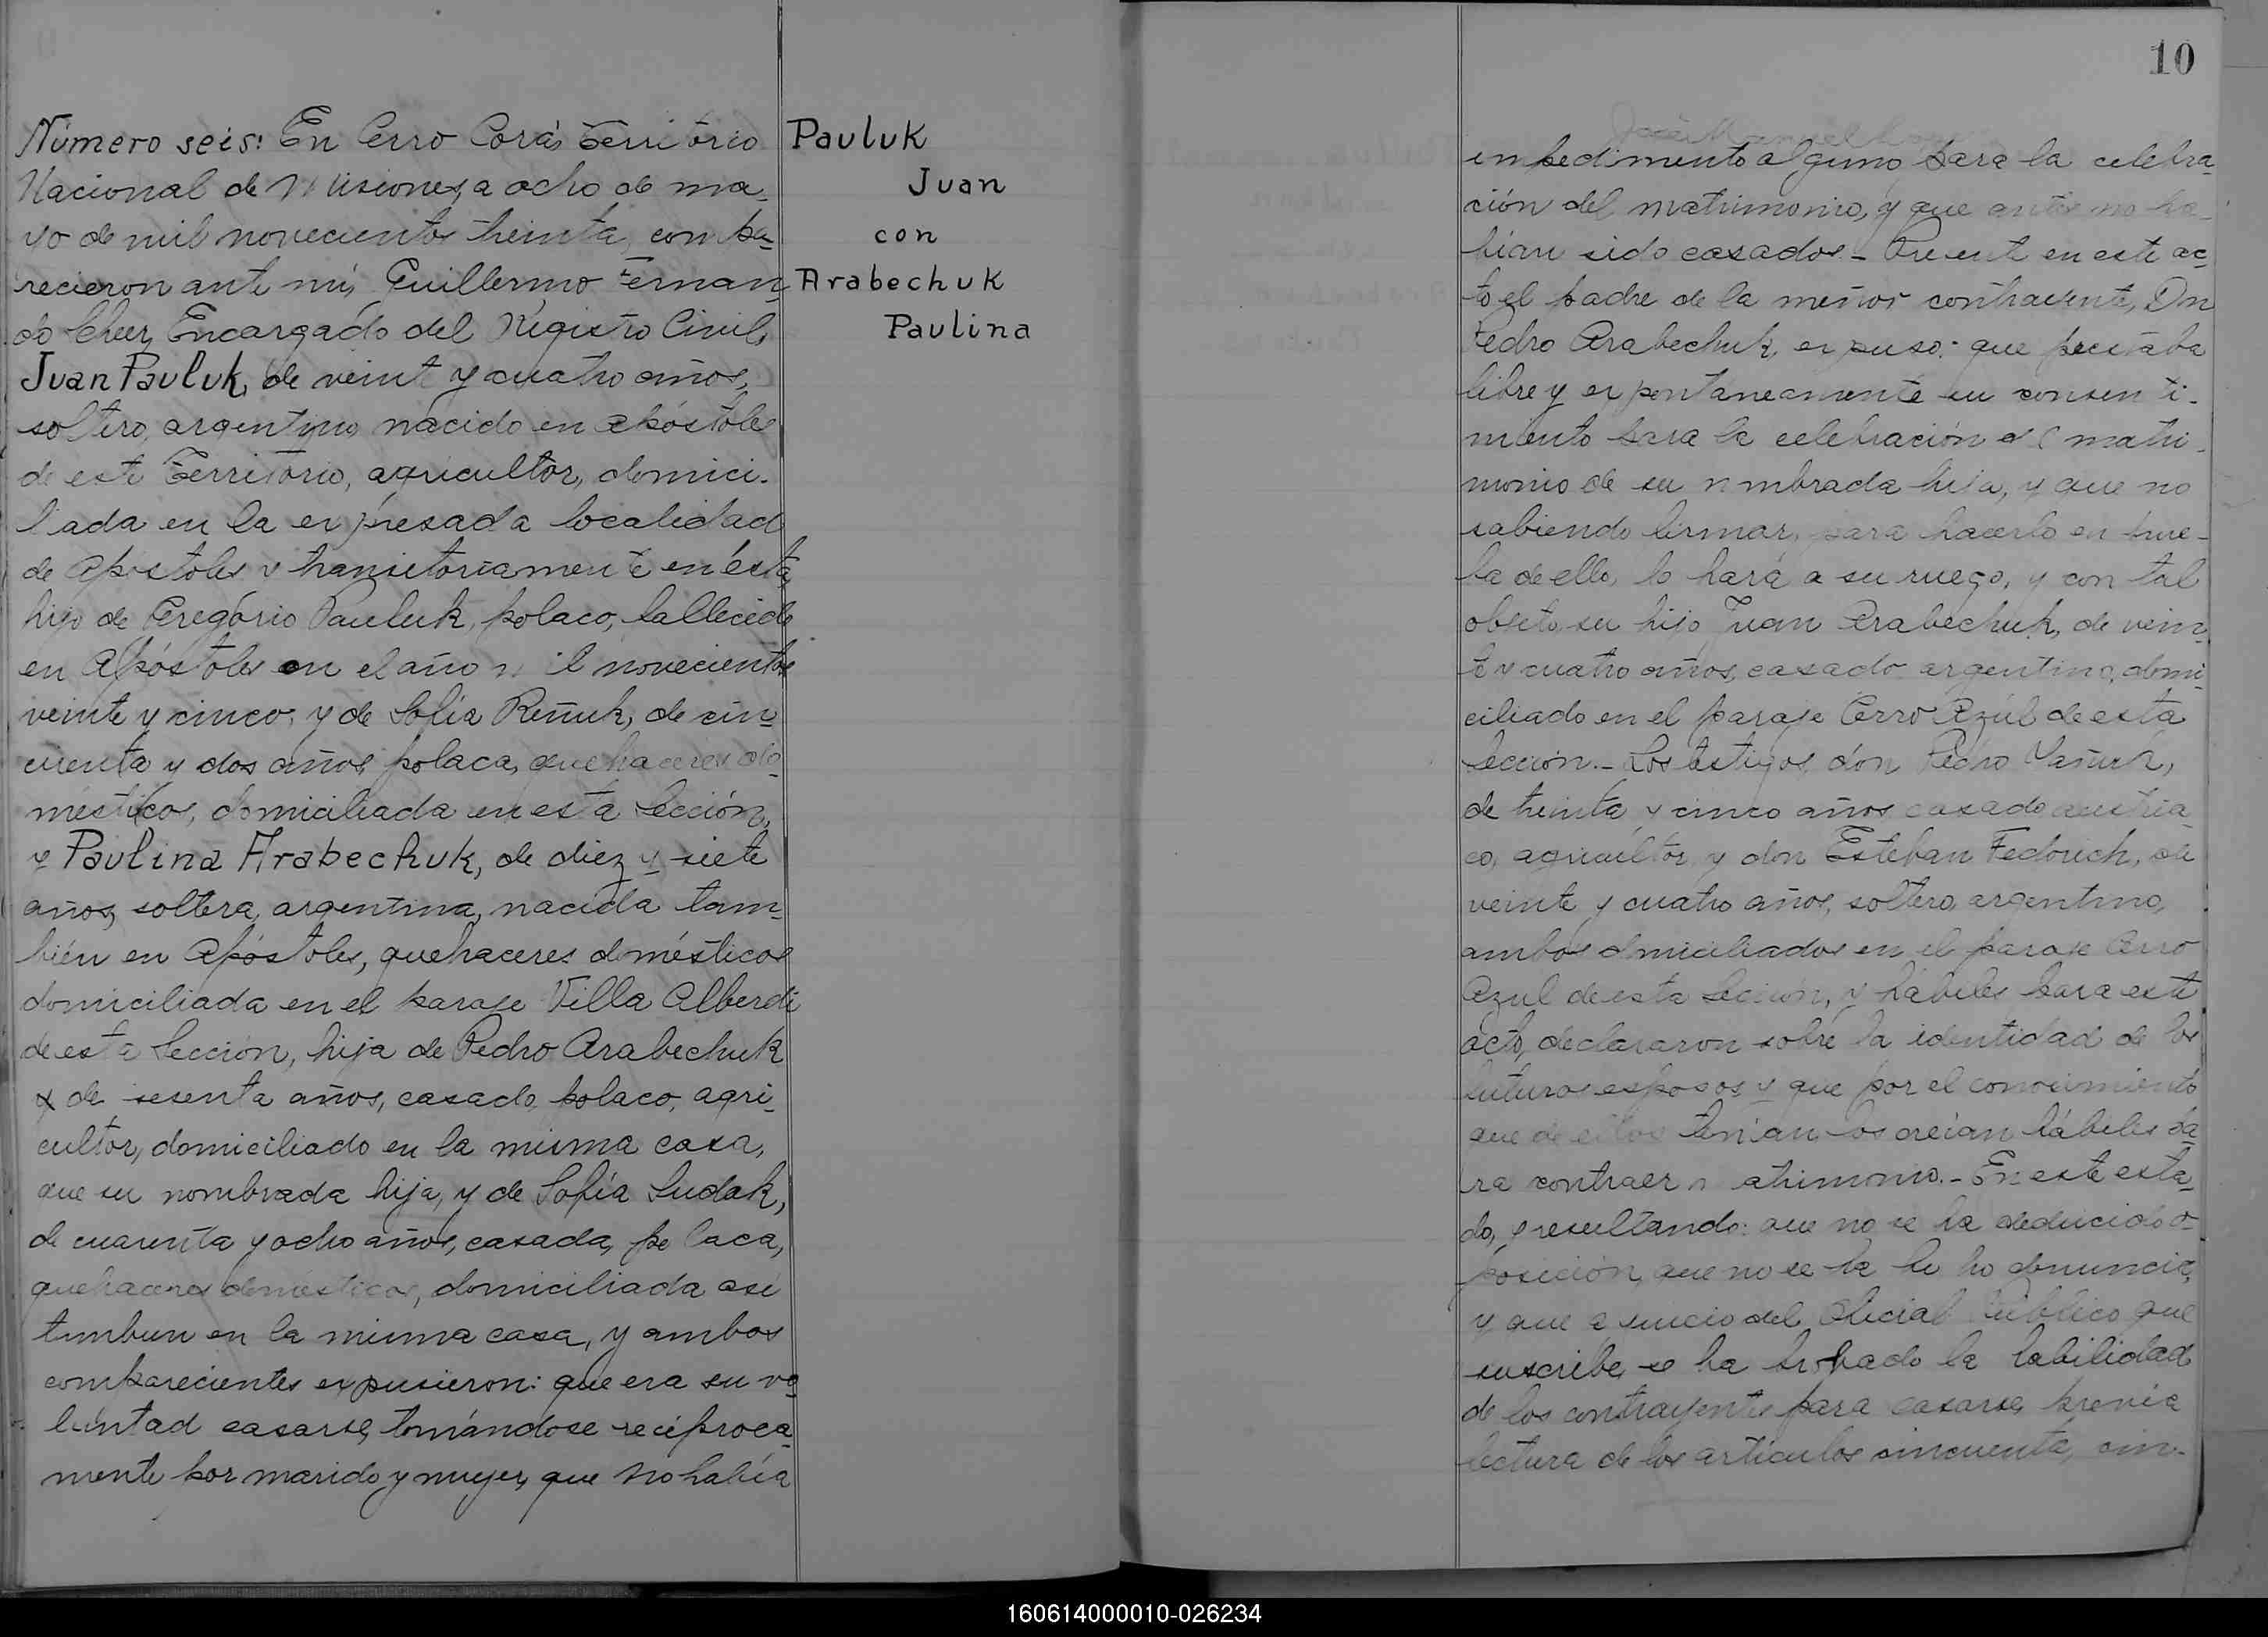 Número seis: En Cerro Corá, Territorio
Nacional de Misiones, a ocho de ma-
yo de mil novecientos treinta, compa-
recieron ante mí, Guillermo Fernan-
do Encargado del Registro Civil,
Juan Pauluk, de veinte y cuatro años,
soltero, argentino, nacido en Apóstoles
de este Territorio, agricultor, domici-
liada en la expresada localidad
de Apóstoles y transitoriamente en ésta,
hijo de Gregorio Pauluk, polaco, fallecido
en Apóstoles en el año mil novecientos
veinte y cinco, y de Sofía Reñuk, de cin-
cuenta y dos años, polaca, quehaceres do-
mésticos, domiciliada en esta Sección,
y Paulina Arabechuk, de diez y siete
años, soltera, argentina, nacida tam-
bién en Apóstoles, quehaceres domésticos
domiciliada en el paraje Villa Alberdi
de esta Sección, hija de Pedro Arabechuk
de sesenta años, casado, polaco, agri-
cultor, domiciliado en la misma casa,
que su nombrada hija, y de Sofía Sudak,
de cuarenta y ocho años, casada, polaca,
quehaceres domésticos, domiciliada asi
tambien en la misma casa, y ambos
comparecientes expusieron: que era su vo-
luntad casarse, tomándose recíproca-
mente por marido y mujer, que no había
Pauluk
Juan
con
Arabechuk
Paulina
10
impedimento alguno para la celebra-
ción del matrimonio, y que antes no ha-
bían sido casados.- Presente en este ac-
to el padre de la menor contrayente, Dn
Pedro Arabechuk, expuso: que prestaba
libre y expontaneamente su consenti-
miento para la celebración del matri-
monio de su nombrada hija, y que no
sabiendo firmar, para hacerlo en prue-
ba de ello, lo hará a su ruego, y con tal
objeto su hijo Juan Arabechuk, de vein-
te y cuatro años, casado argentino, domi-
ciliado en el paraje Cerro Azúl de esta
Sección.- Los testigos, don Pedro Yañuk,
de treinta y cinco años, casado austría-
co, agricultor, y don Esteban Fedorich, de
veinte y cuatro años, soltero, argentino,
ambos domiciliados en el paraje Cerro
Azul de esta Sección, y hábiles para este
acto, declararon sobre la identidad de los
futuros esposos y que por el conocimiento
que de ellos tenían los creían hábiles pa-
ra contraer matrimonio.- En este esta-
do, y resultando: que no se ha deducido o-
posición, que no se ha hecho denuncia,
y que a juicio del Oficial Público que
suscribe, se ha probado la habilidad
de los contrayentes para casarse, previa
lectura de los artículos cincuenta, cin-
160614000010-026234